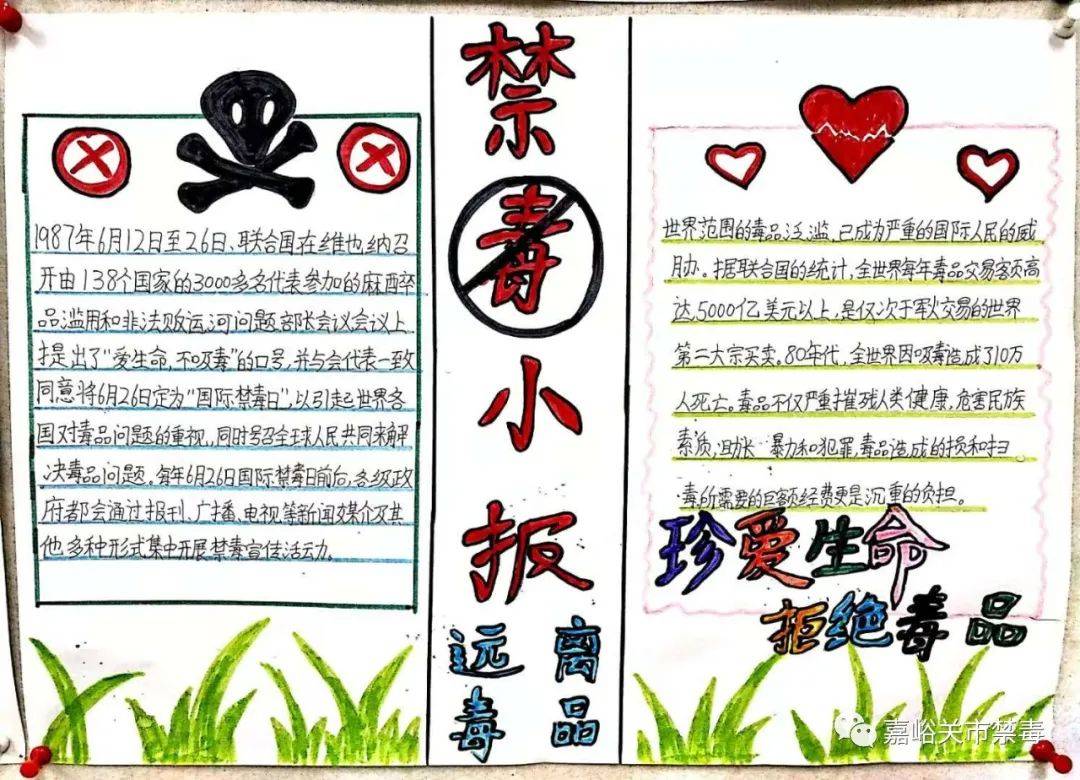 1987年6月12日至26日、联合国在维也纳召
开由138个国家的3000多名代表参加的麻醉
品滥用和非法贩运问题部长会议会议上
提出了“爱生命,不吸毒”的口号,并与会代表一致
同意将6月26日定为“国际禁毒日”,以引起世界各
国对毒品问题的重视,同时号召全球人民共同来解
决毒品问题。每年6月26日国际禁毒日前后,各级政
府都会通过报刊、广播、电视等新闻媒介及其
他多种形式集中开展禁毒宣传活动。
禁
毒
小
报
远离
毒品
世界范围的毒品泛滥,已成为严重的国际人民的威
胁。据联合国的统计,全世界每年毒品交易额高
达5000亿美元以上,是仅次于军火交易的世界
第二大宗买卖。80年代,全世界因吸毒造成了10万
人死亡。毒品不仅严重摧残人类健康,危害民族
素质,助长 暴力和犯罪,毒品造成的损和扫
毒所需要的巨额经费更是沉重的负担。
珍爱生命
拒绝毒品
嘉峪关市禁毒